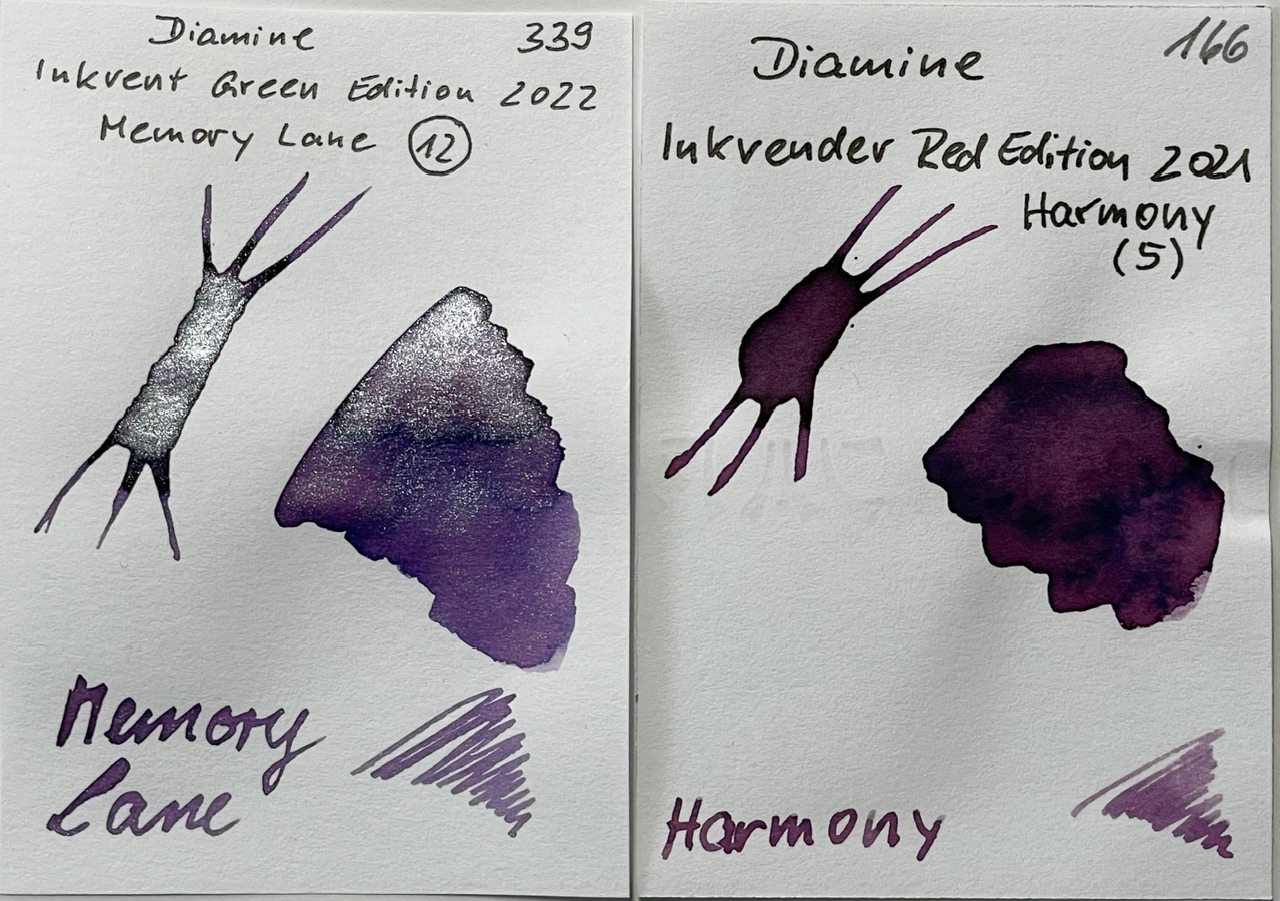 Diamine 339
Inkvent Green Edition 2022
Memory Lane 12
Memory
Lane
Diamine 166
Inkvender Red Edition 2021
Harmony
(5)
Harmony